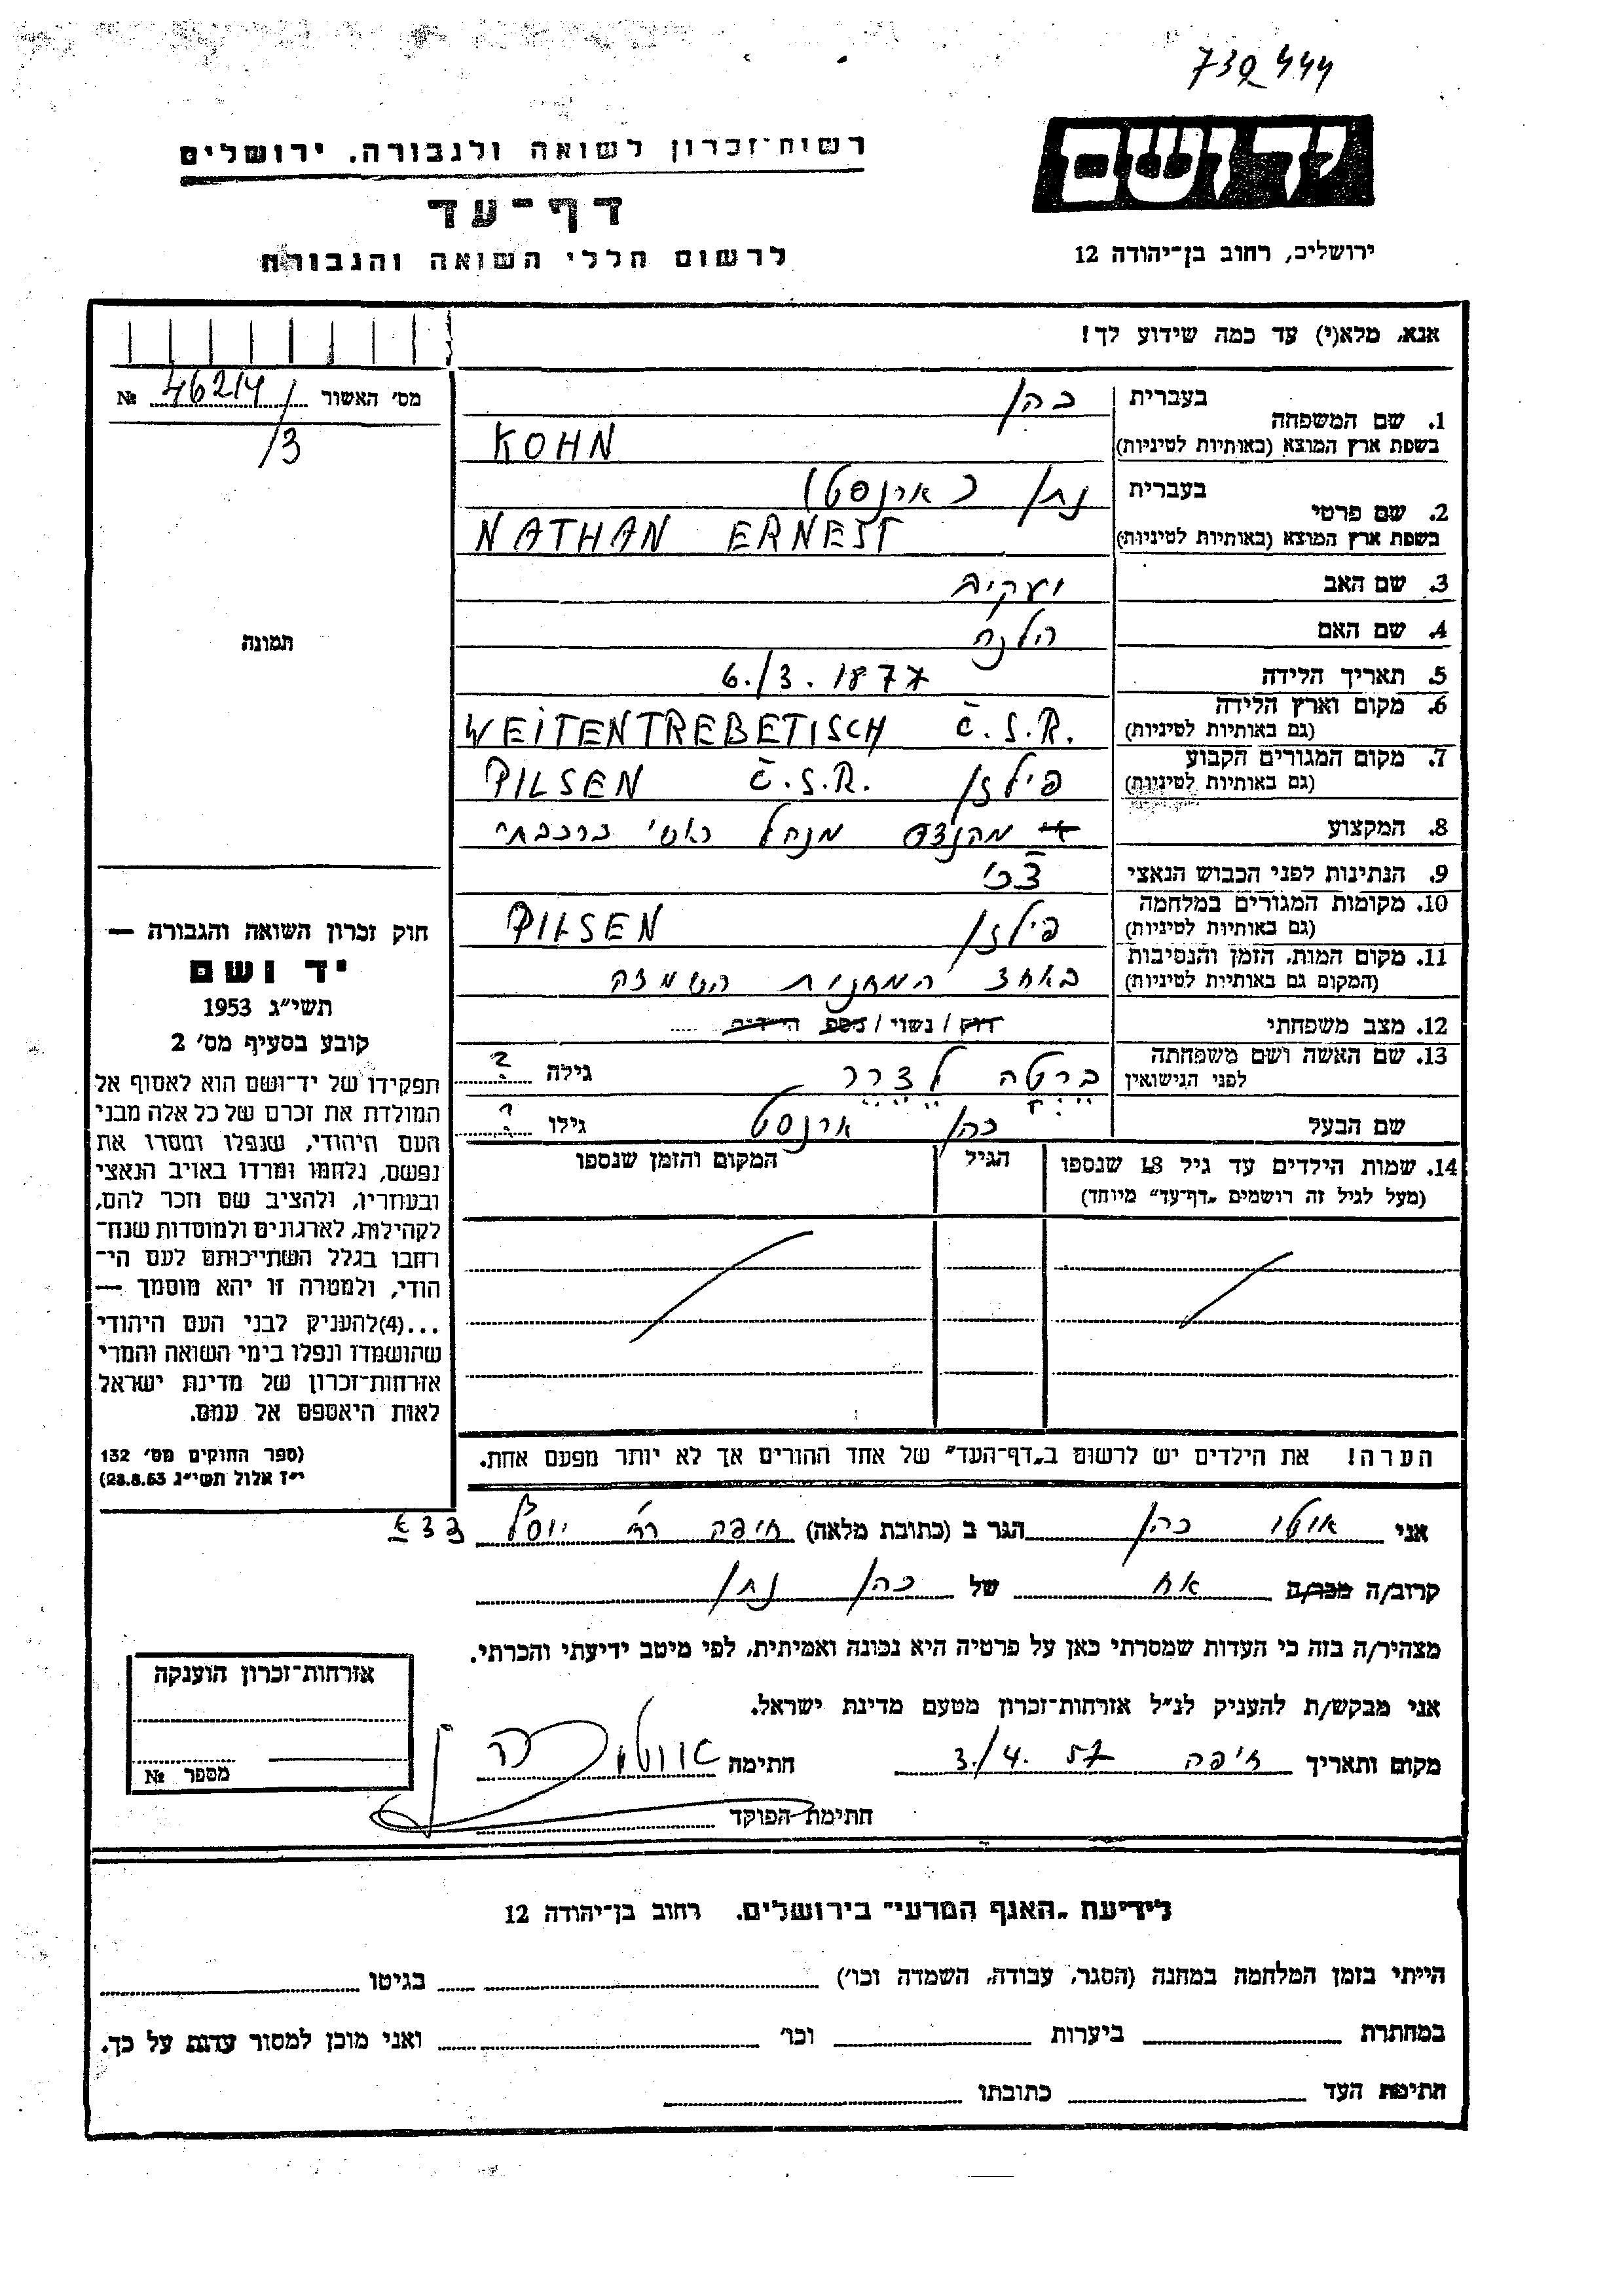 730444
יד ושם
ירושלים, רחוב בן־יהודה 12
רשות־זכרון לשואה ולגבורה, ירושלים
דף־עד
לרשום חללי השואה והגבורה
אנא, מלא(י) עד כמה שידוע לך!
מס׳ האשור 46214 №
/3
תמונה
1. שם המשפחה
בעברית כהן
בשפת ארץ המוצא (באותיות לטיניות) KOHN
2. שם פרטי
בעברית נתן (ארנסט)
בשפת ארץ המוצא (באותיות לטיניות) NATHAN ERNEST
3. שם האב יעקב
4. שם האם הלנה
5. תאריך הלידה 6./3. 1877
6. מקום וארץ הלידה
(גם באותיות לטיניות) WEITENTREBETISCH Č.S.R.
7. מקום המגורים הקבוע
(גם באותיות לטיניות) פילזן PILSEN Č.S.R.
8. המקצוע מהנדס מנהל ראשי ברכבת
9. הנתינות לפני הכבוש הנאצי צ׳כי
10. מקומות המגורים במלחמה
(גם באותיות לטיניות) פילזן PILSEN
11. מקום המות, הזמן והנסיבות
(המקום גם באותיות לטיניות) באחד המחנות השמדה
12. מצב משפחתי רוק / נשוי / מספר הילדים
13. שם האשה ושם משפחתה
לפני הנישואין ברטה לדרר גילה ?
שם הבעל כהן ארנסט גילו ?
14. שמות הילדים עד גיל 18 שנספו הגיל המקום והזמן שנספו
(מעל לגיל זה רושמים „דף־עד״ מיוחד)
הערה! את הילדים יש לרשום ב„דף־העד״ של אחד ההורים אך לא יותר מפעם אחת.
חוק זכרון השואה והגבורה —
יד ושם
תשי״ג 1953
קובע בסעיף מס׳ 2
תפקידו של יד־ושם הוא לאסוף אל
המולדת את זכרם של כל אלה מבני
העם היהודי, שנפלו ומסרו את
נפשם, נלחמו ומרדו באויב הנאצי
ובעוזריו, ולהציב שם וזכר להם,
לקהילות, לארגונים ולמוסדות שנח־
רבו בגלל השתייכותם לעם הי־
הודי, ולמטרה זו יהא מוסמך —
...(4) להעניק לבני העם היהודי
שהושמדו ונפלו בימי השואה והמרי
אזרחות־זכרון של מדינת ישראל
לאות היאספם אל עמם.
(ספר החוקים מס׳ 132
י״ז אלול תשי״ג 28.8.53)
אני אוטו כהן הגר ב (כתובת מלאה) חיפה רח׳ יוסף
קרוב/ה מכר/ה אח של כהן נתן
מצהיר/ה בזה כי העדות שמסרתי כאן על פרטיה היא נכונה ואמיתית, לפי מיטב ידיעתי והכרתי.
אני מבקש/ת להעניק לנ״ל אזרחות־זכרון מטעם מדינת ישראל.
מקום ותאריך חיפה 3./4. 57 חתימה אוטו כהן
חתימת הפוקד
אזרחות־זכרון הוענקה
מספר №
לידיעת „האגף המדעי״ בירושלים, רחוב בן־יהודה 12
הייתי בזמן המלחמה במחנה (הסגר, עבודה, השמדה וכו׳) בגיטו
במחתרת ביערות וכו׳ ואני מוכן למסור עדות על כך.
חתימת העד כתובתו